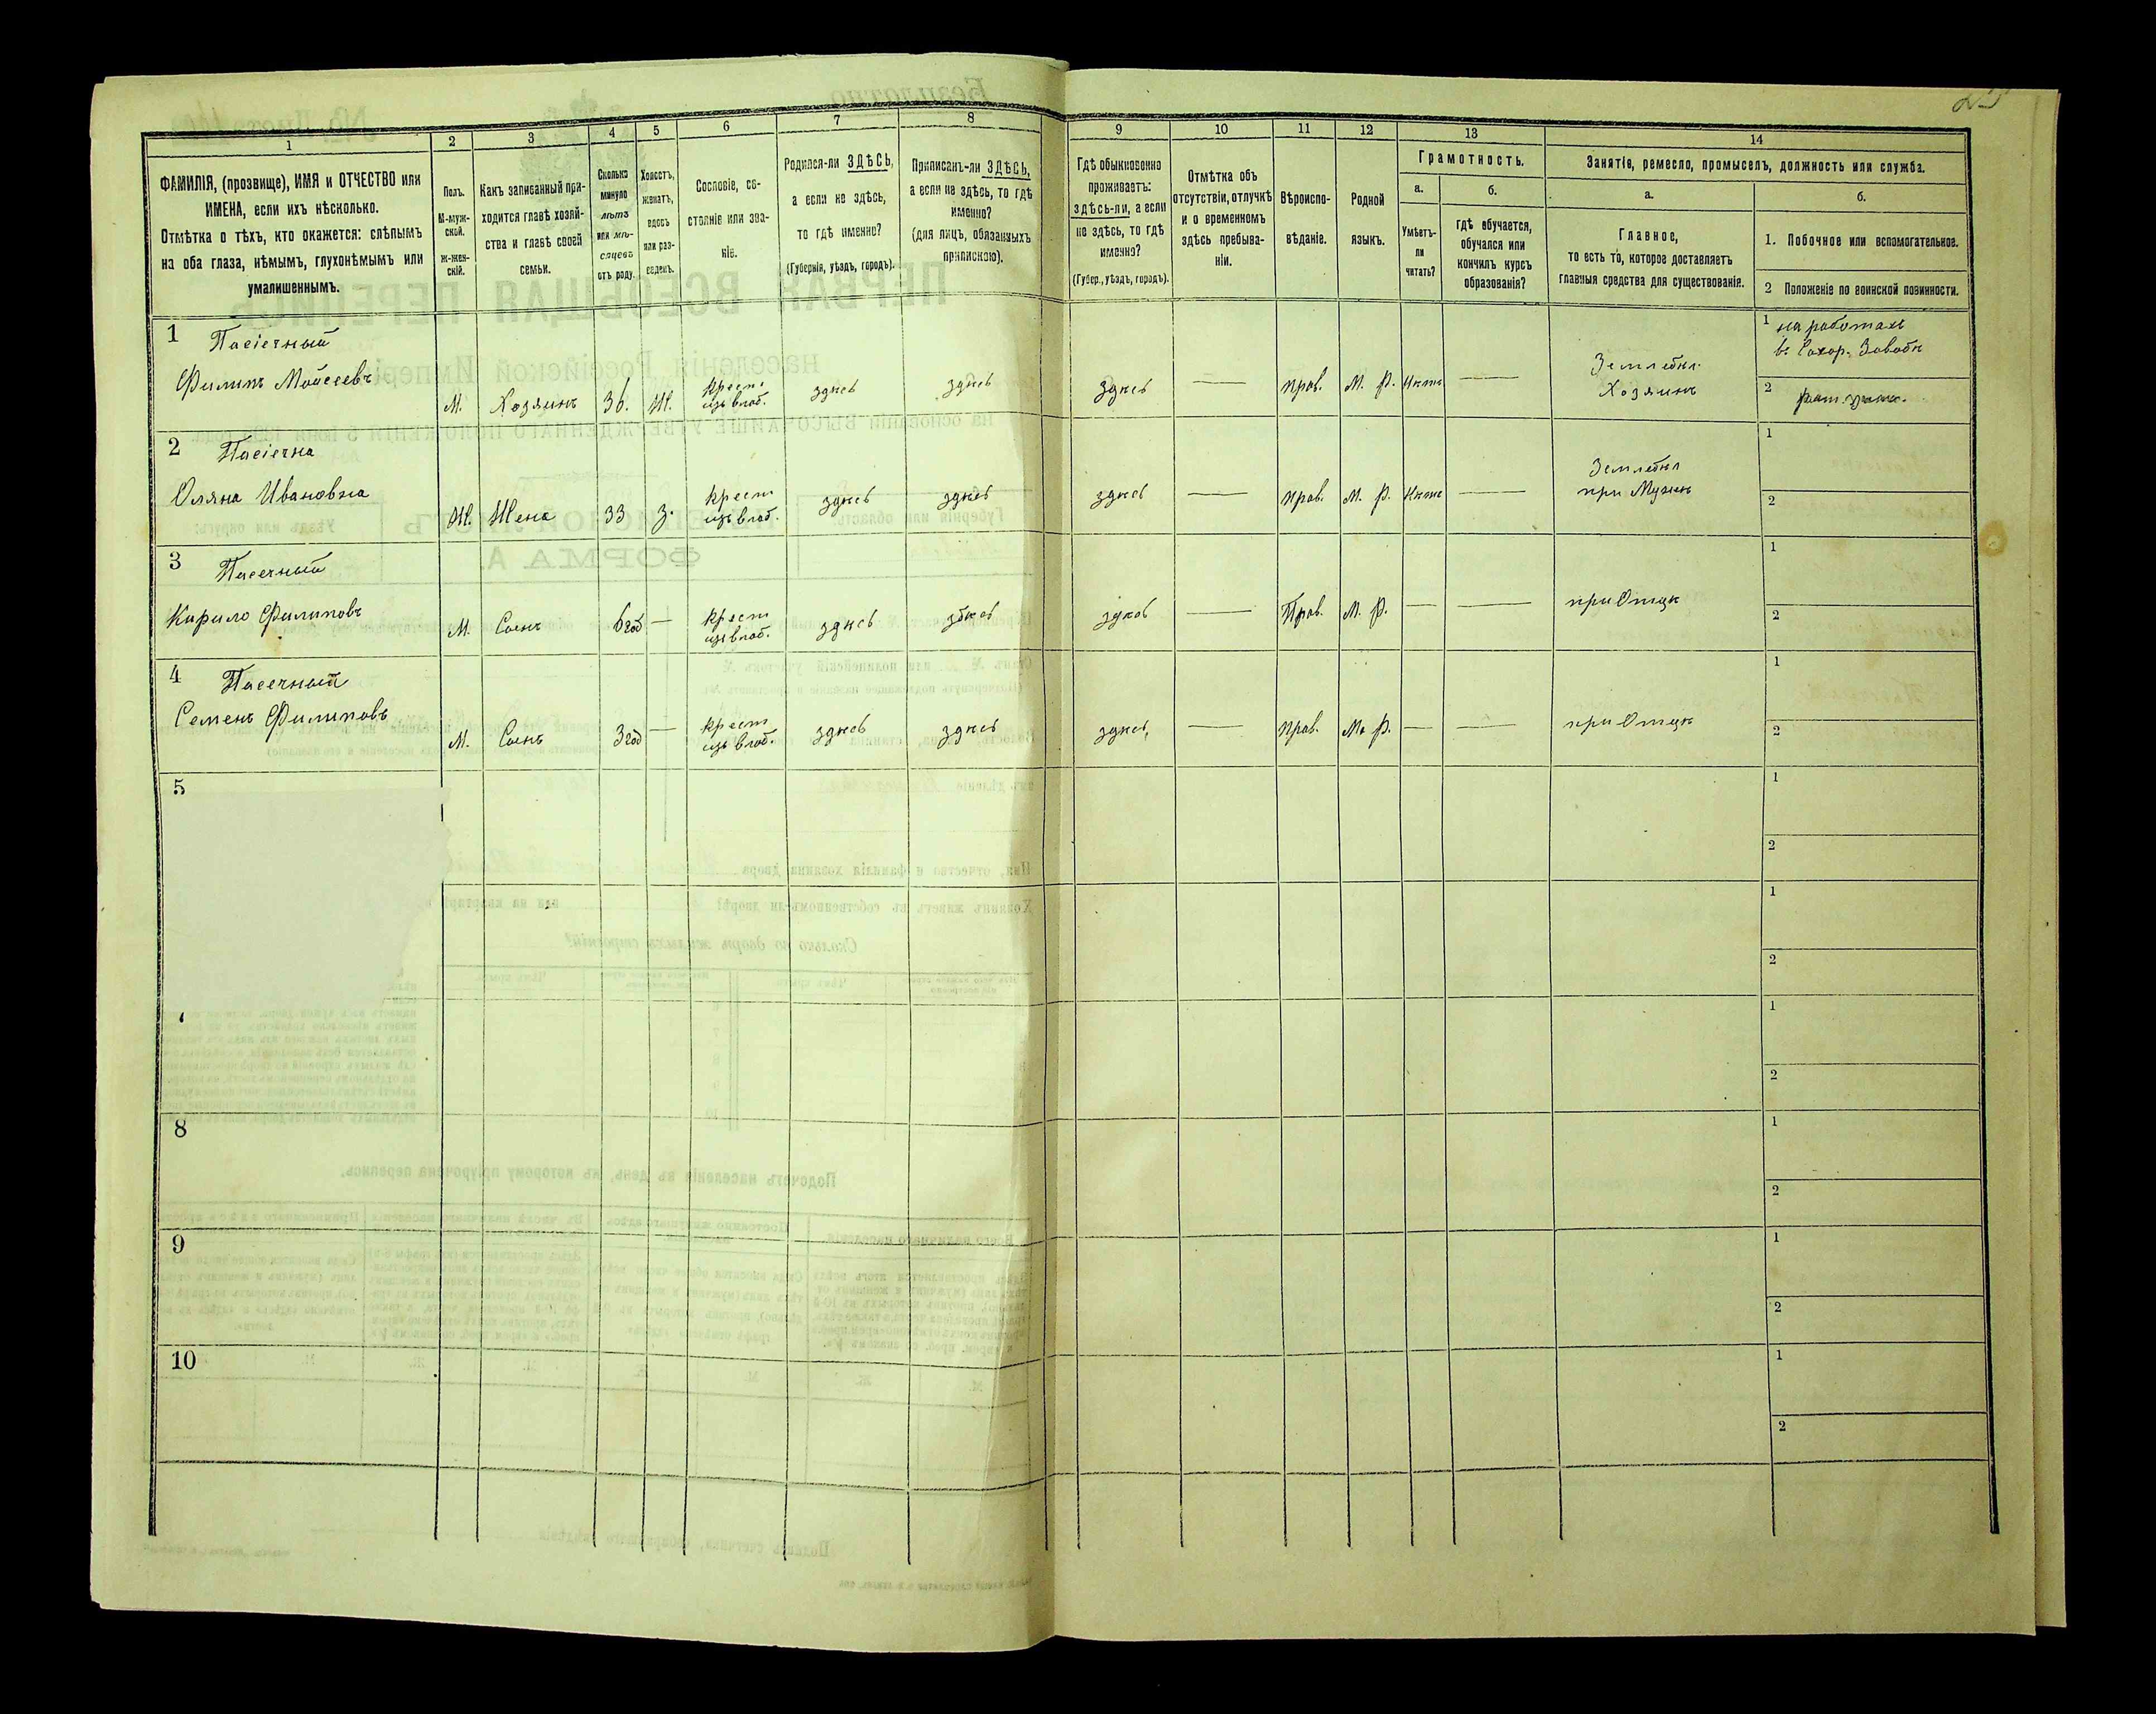 25
1
2
3
4
5
6
7
8
9
10
11
12
13
14
ФАМИЛІЯ, (прозвище), ИМЯ и ОТЧЕСТВО или
ИМЕНА, если ихъ нѣсколько.
Отмѣтка о тѣхъ, кто окажется: слѣпымъ
на оба глаза, нѣмымъ, глухонѣмымъ или
умалишеннымъ.
Полъ.
М-муж-
ской.
Ж-жен-
скій.
Какъ записанный при-
ходится главѣ хозяй-
ства и главѣ своей
семьи.
Сколько
минуло
лѣтъ
или мѣ-
сяцевъ
отъ роду.
Холостъ,
женатъ,
вдовъ
или раз-
веденъ.
Сословіе, со-
стояніе или зва-
ніе.
Родился-ли ЗДѢСЬ,
а если не здѣсь,
то гдѣ именно?
(Губернія, уѣздъ, городъ).
Приписанъ-ли ЗДѢСЬ,
а если не здѣсь, то гдѣ
именно?
(для лицъ, обязанныхъ
припискою).
Гдѣ обыкновенно
проживаетъ:
здѣсь-ли, а если
не здѣсь, то гдѣ
именно?
(Губер., уѣздъ, городъ).
Отмѣтка объ
отсутствіи, отлучкѣ
и о временномъ
здѣсь пребыва-
ніи.
Вѣроиспо-
вѣданіе.
Родной
языкъ.
Грамотность.
а.
Умѣетъ-
ли
читать?
б.
Гдѣ обучается,
обучался или
кончилъ курсъ
образованія?
Занятіе, ремесло, промыселъ, должность или служба.
а.
Главное,
то есть то, которое доставляетъ
главныя средства для существованія.
б.
1. Побочное или вспомогательное.
2 Положеніе по воинской повинности.
1 Пасічный
Филипъ Мойсеевъ
М. Хозяинъ 36. Ж. Крест. изъ влад. здѣсь здѣсь здѣсь — прав. М. Р. Нѣтъ —
Земледѣл.
Хозяинъ
1 на работахъ
въ Сахар. Заводѣ
2 рат.
2 Пасічна
Оляна Ивановна
Ж. Жена 33 З. Крест изъ влад. здѣсь здѣсь здѣсь — прав. М. Р. Нѣтъ —
Земледѣл
при Мужѣ
1
2
3 Пасечный
Кирило Филиповъ
М. Сынъ 6 год — Крест изъ влад. здѣсь здѣсь здѣсь — Прав. М. Р. — — при Отцѣ
1
2
4 Пасечный
Семенъ Филиповъ
М. Сынъ 3 год — Крест изъ влад. здѣсь здѣсь здѣсь, — прав. М. Р. — — при Отцѣ
1
2
5
1
2
1
2
1
2
8
1
2
9
1
2
10
1
2